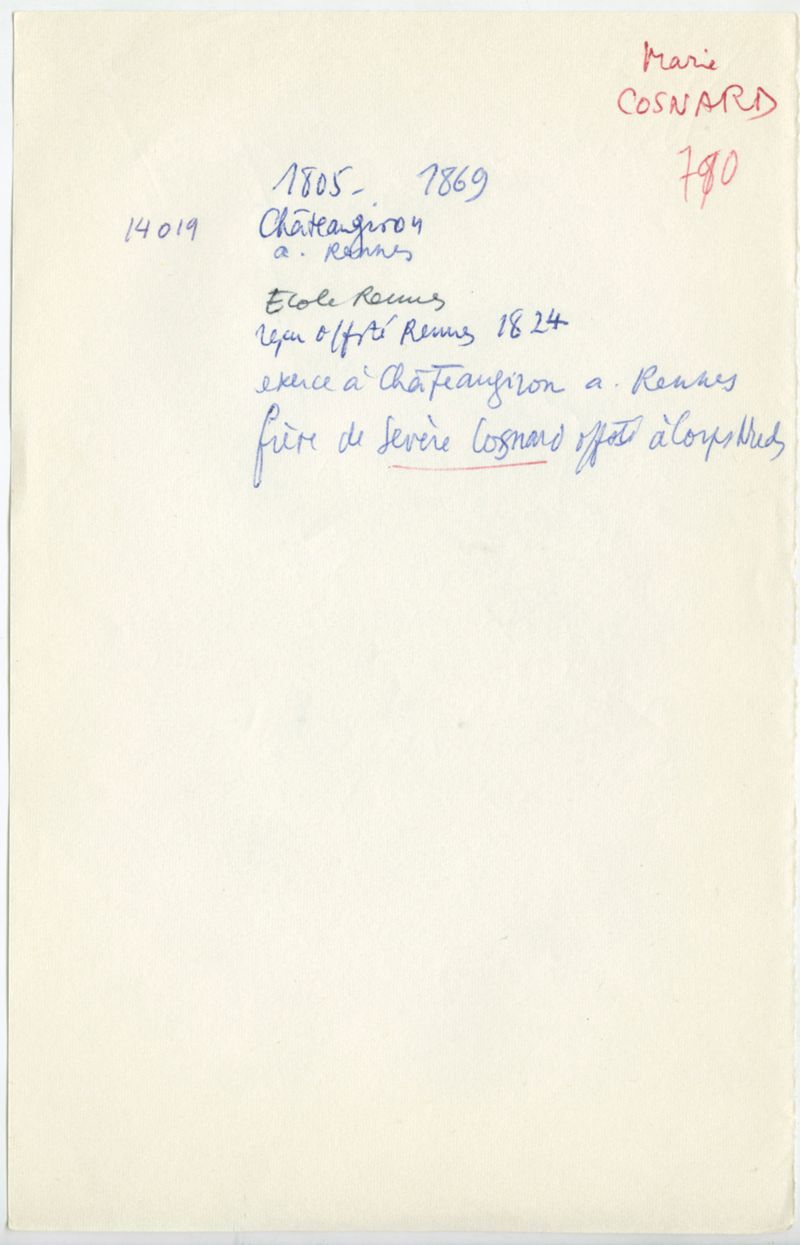 Marie
COSNARD
780
1805 - 1869
14019 Châteaugiron
a. Rennes
Ecole Rennes
reçu off. té Rennes 1824
exerce à Châteaugiron a. Rennes
frère de Sevère Cosnard off. té à Corps Nuds